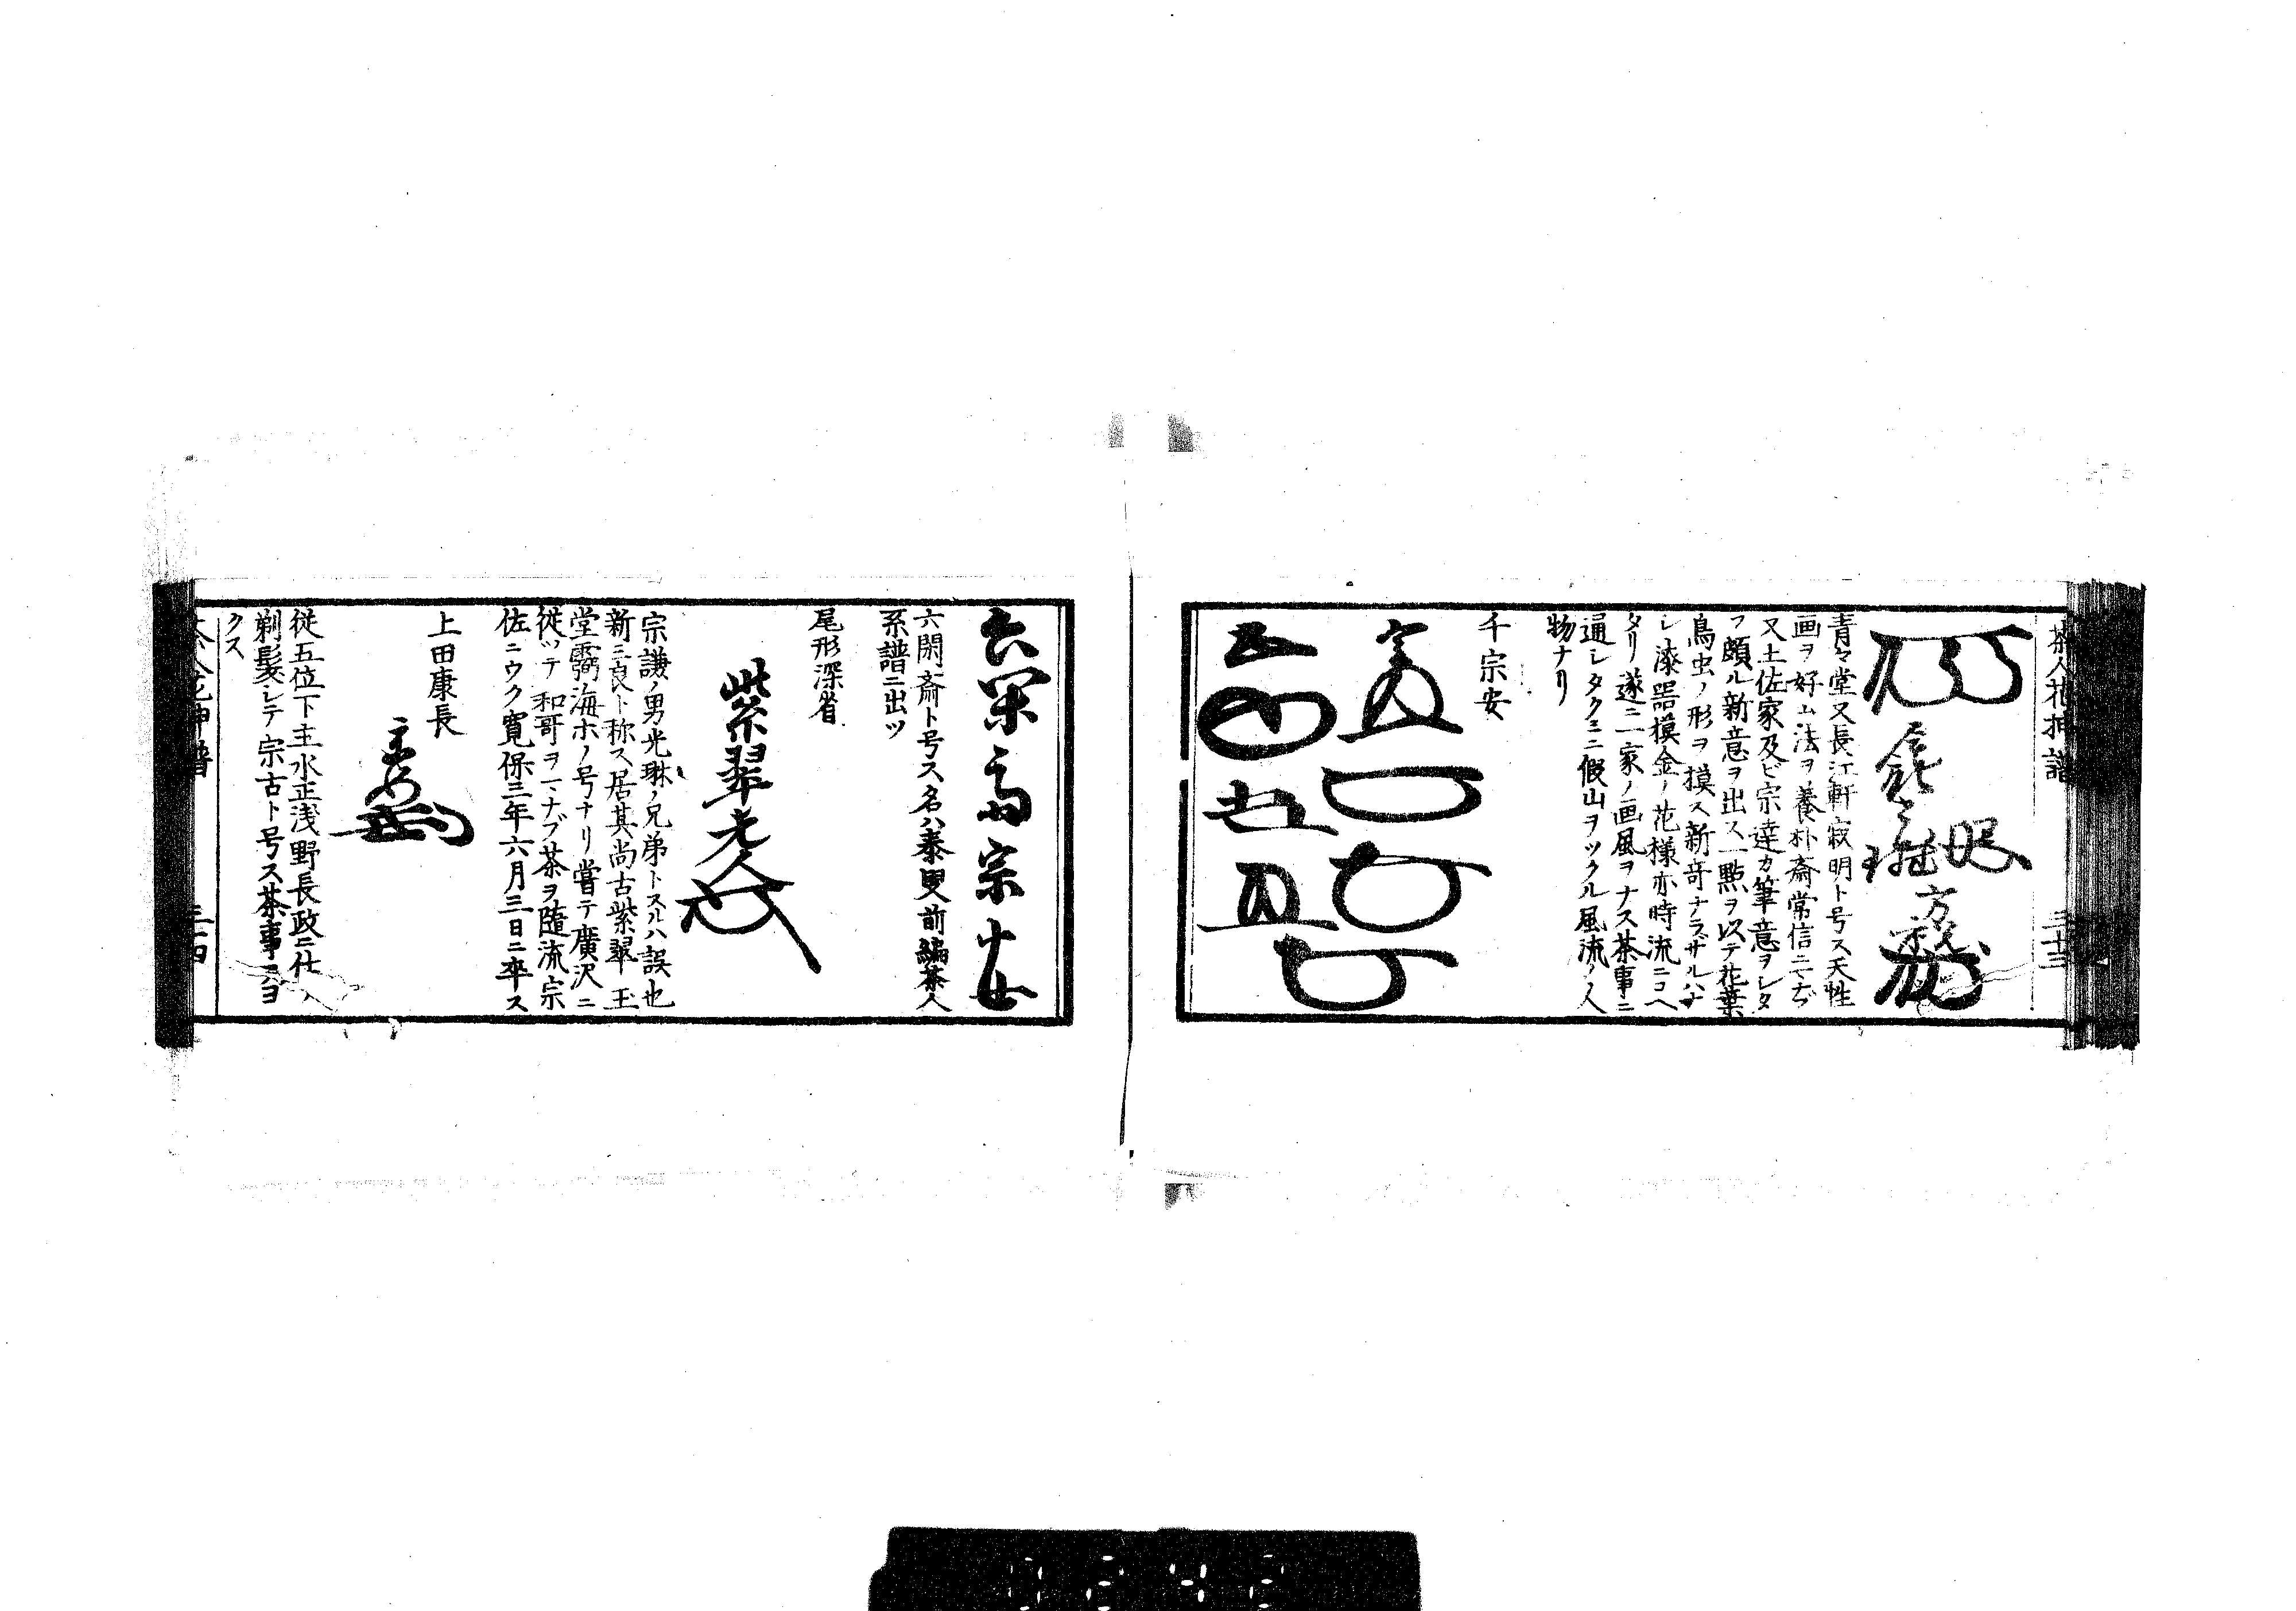 茶人花押譜
三十三
青々堂又長江軒寂明ト号ス天性
画ヲ好ム法ヲ養朴斎常信ニマナヂ
又土佐家及ビ宗達カ筆意ヲシタ
フ頗ル新意ヲ出ス一點ヲ以テ花葉
鳥虫ノ形ヲ摸ス新奇ナラザルハナ
シ漆器摸金ノ花様亦時流ニコヘ
タリ遂ニ一家ノ画風ヲナス茶事ニ
通シタクミニ假山ヲツクル風流ノ人
物ナリ
千宗安
六閑斎ト号ス名ハ泰叟前編茶人
系譜ニ出ヅ
尾形深省
紫翠老人
宗謙ノ男光琳ノ兄弟トスルハ誤也
新三良ト称ス居其尚古紫翠王
堂霧海ホノ号ナリ嘗テ廣沢ニ
従ツテ和哥ヲマナブ茶ヲ随流宗
佐ニウク寛保三年六月三日ニ卒ス
上田康長
従五位下主水正浅野長政ニ仕
剃髪シテ宗古ト号ス茶事ヲヨ
クス